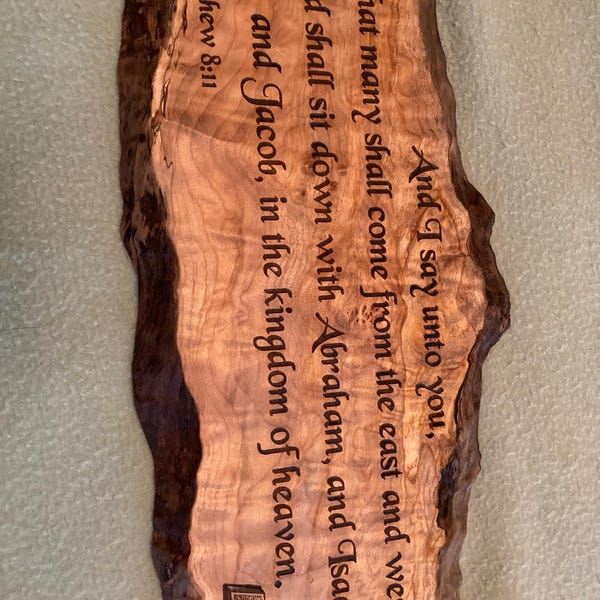 And I say unto you,
hat many shall come from the east and we
d shall sit down with Abraham, and Isaa
and Jacob, in the kingdom of heaven.
hew 8:11